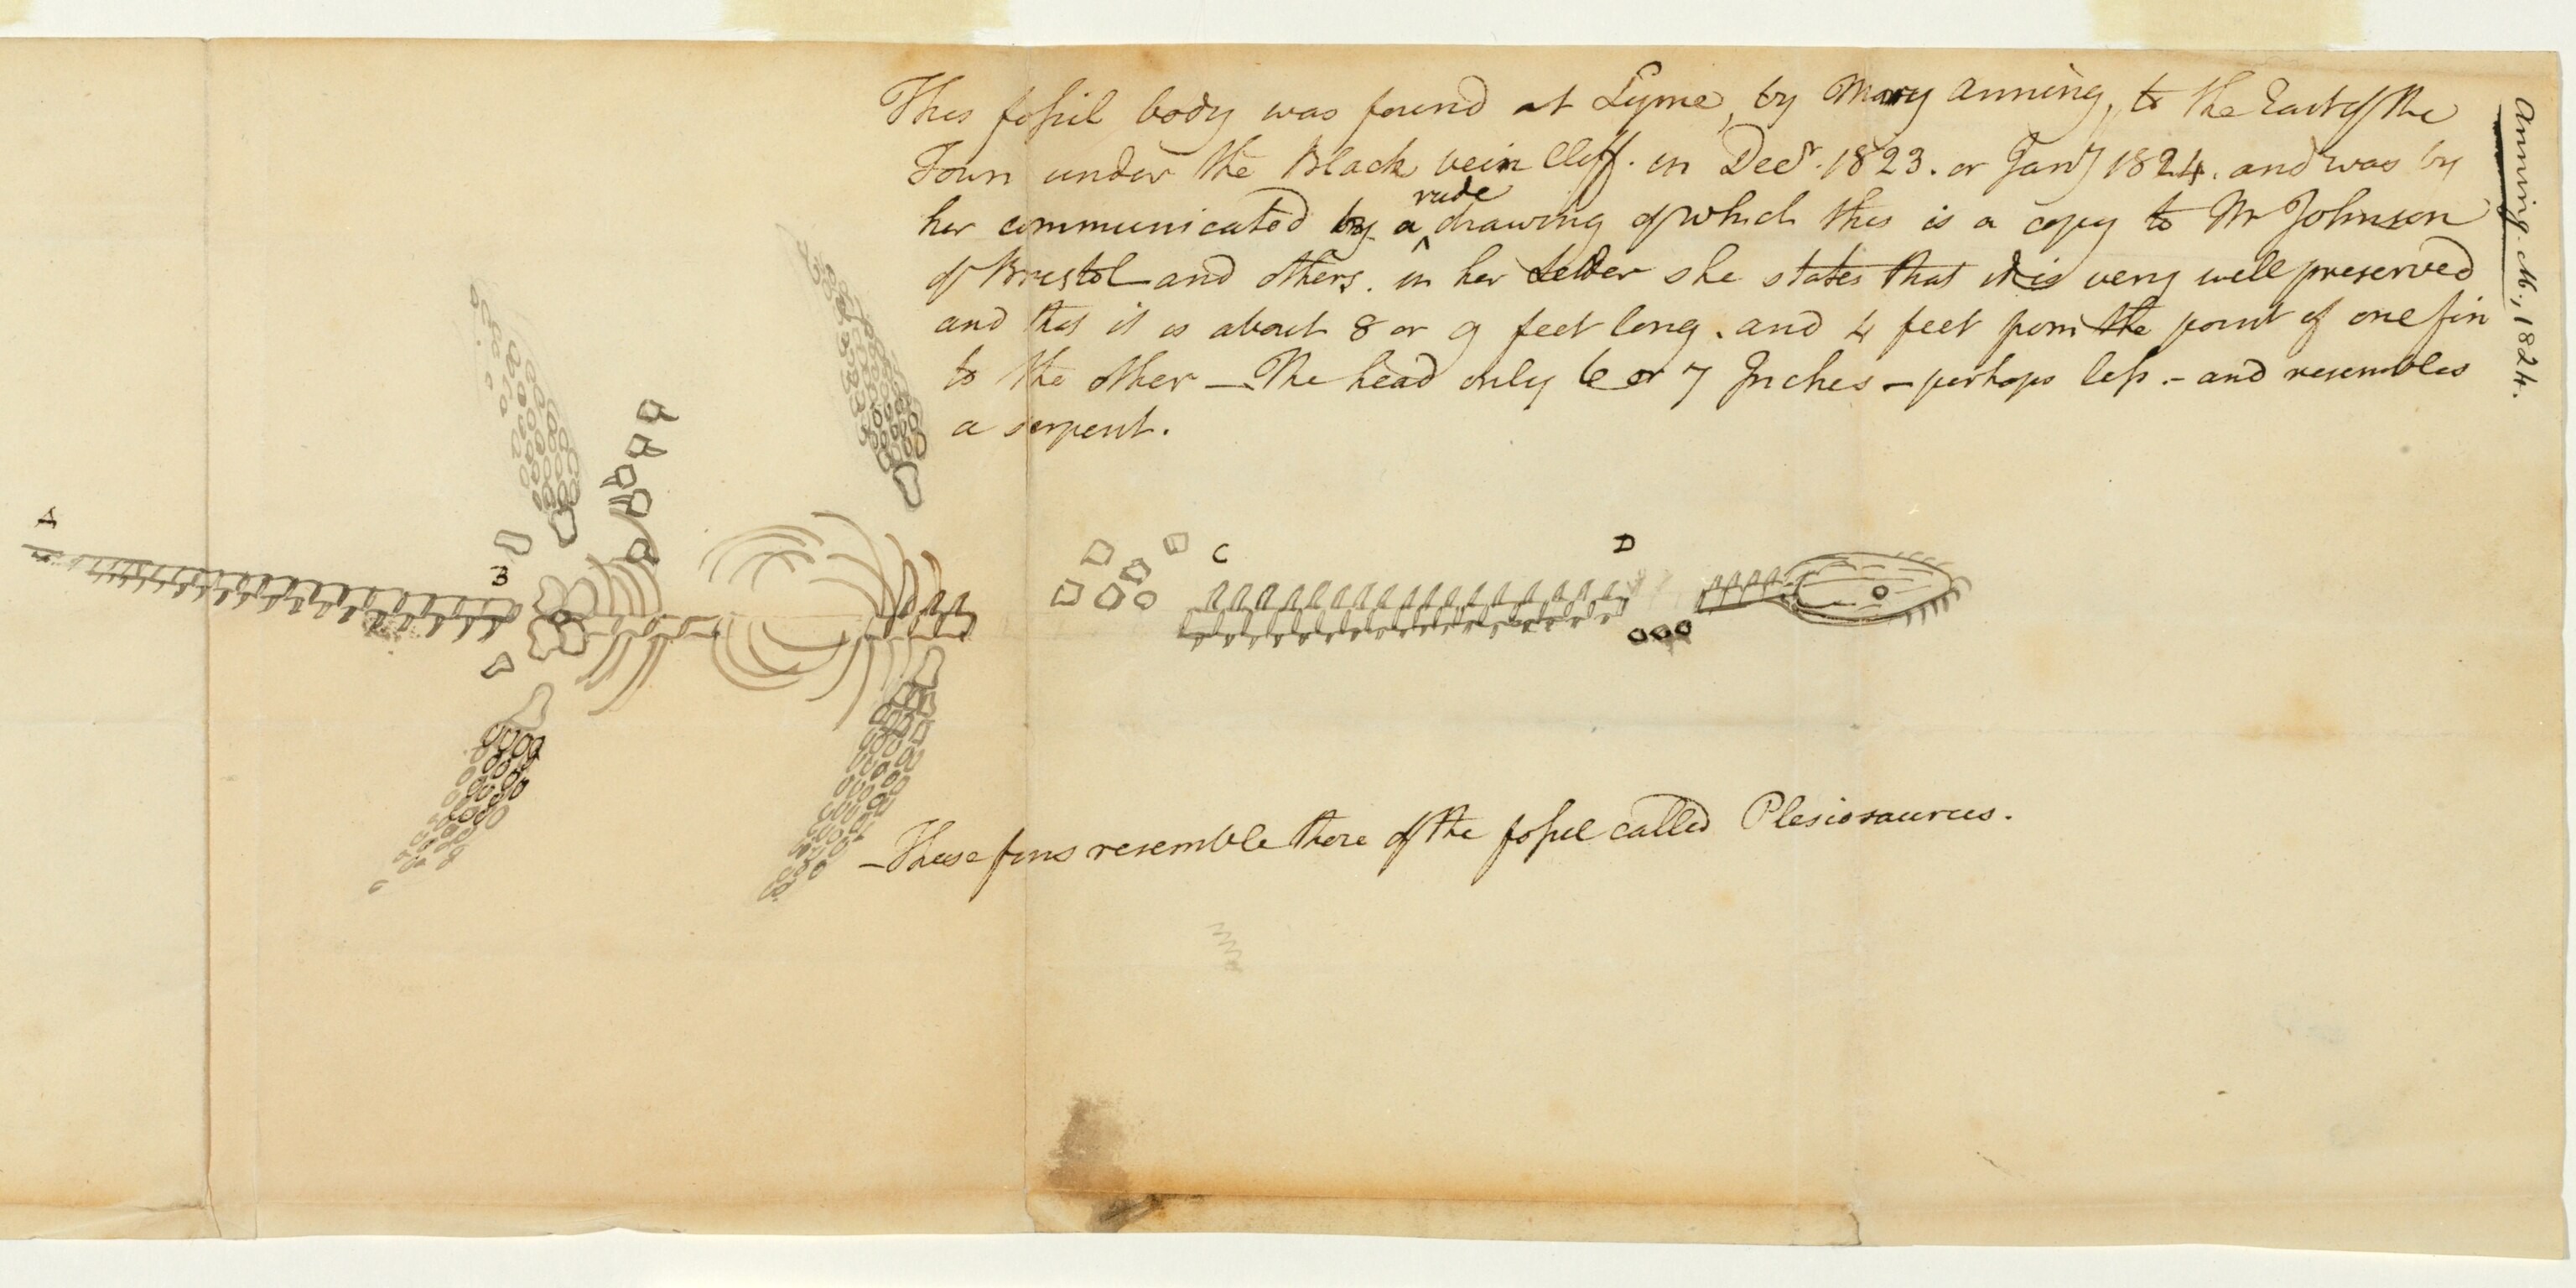 This fossil body was found at Lyme, by Mary Anning, to the East of the
Town under the Black vein Cliff. in Decr. 1823. or Jany 1824. and was by
her communicated by a rude drawing of which this is a copy to Mr Johnson
of Bristol and others. in her Letter she states that it is very well preserved
and that it is about 8 or 9 feet long. and 4 feet from the point of one fin
to the other – The head only 6 or 7 Inches – perhaps less. – and resembles
a serpent.
Anning. M., 1824.
A
B
C
D
– These fins resemble those of the fossil called Plesiosaurus.